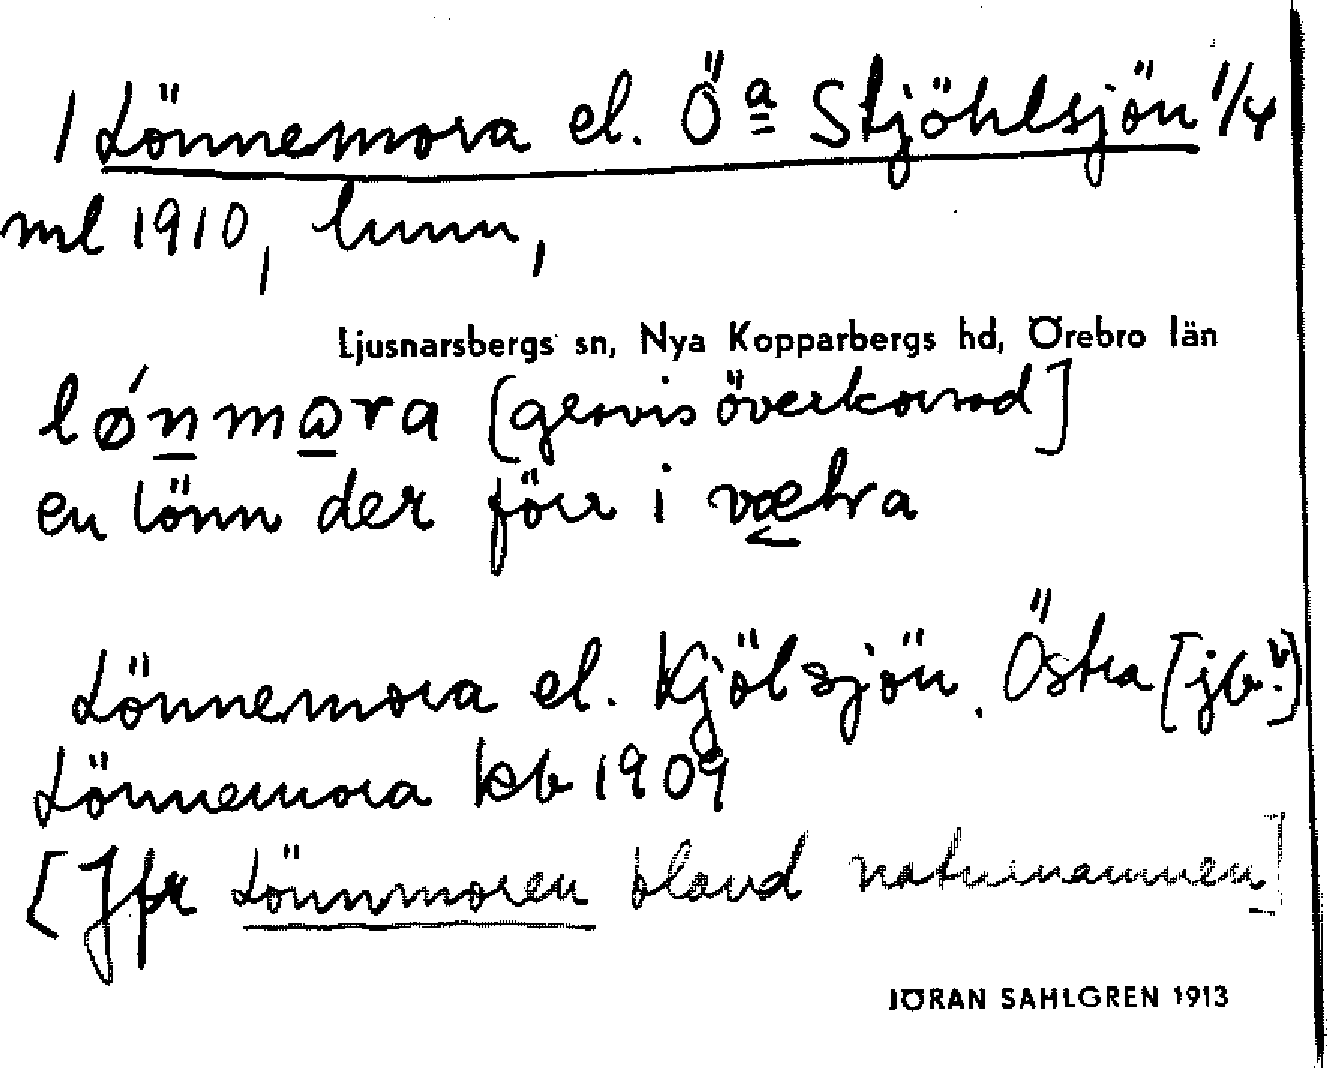 1 Lönnemora el. Öª Stjöhlsjön 1/4
ml 1910, hmn,
Ljusnarsbergs sn, Nya Kopparbergs hd, Örebro län
lǿnmara [genvis överkorsad]
en lönn der förr i væl­ra
Lönnemora el. Kjölsjön, Östra [jb.!]
Lönnemora kb 1909
[Jfr Lönnmoren bland naturnamnen]
JÖRAN SAHLGREN 1913